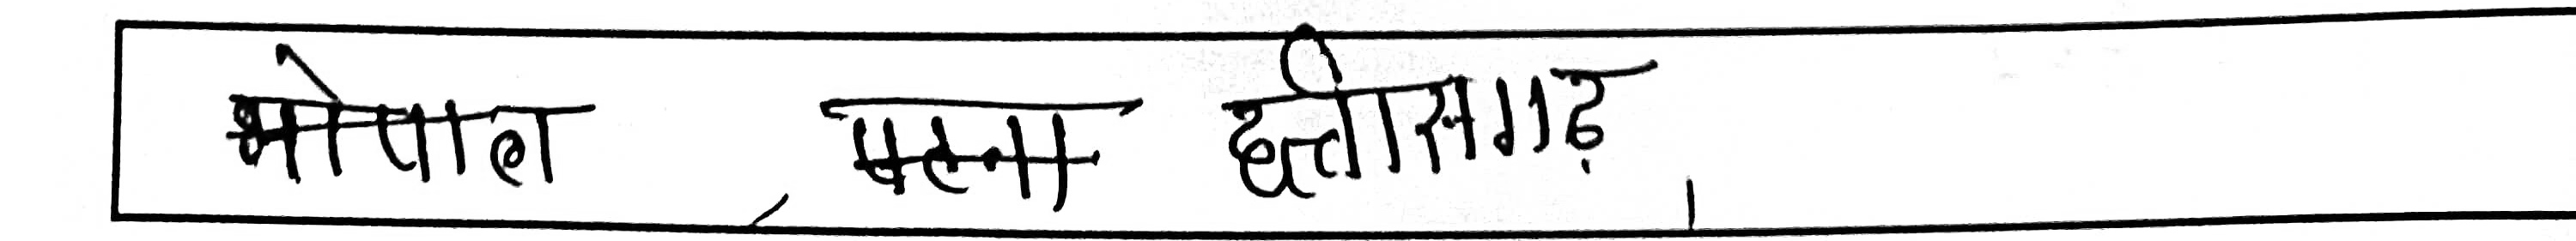 भोपाल, पटना छत्तीसगढ़,